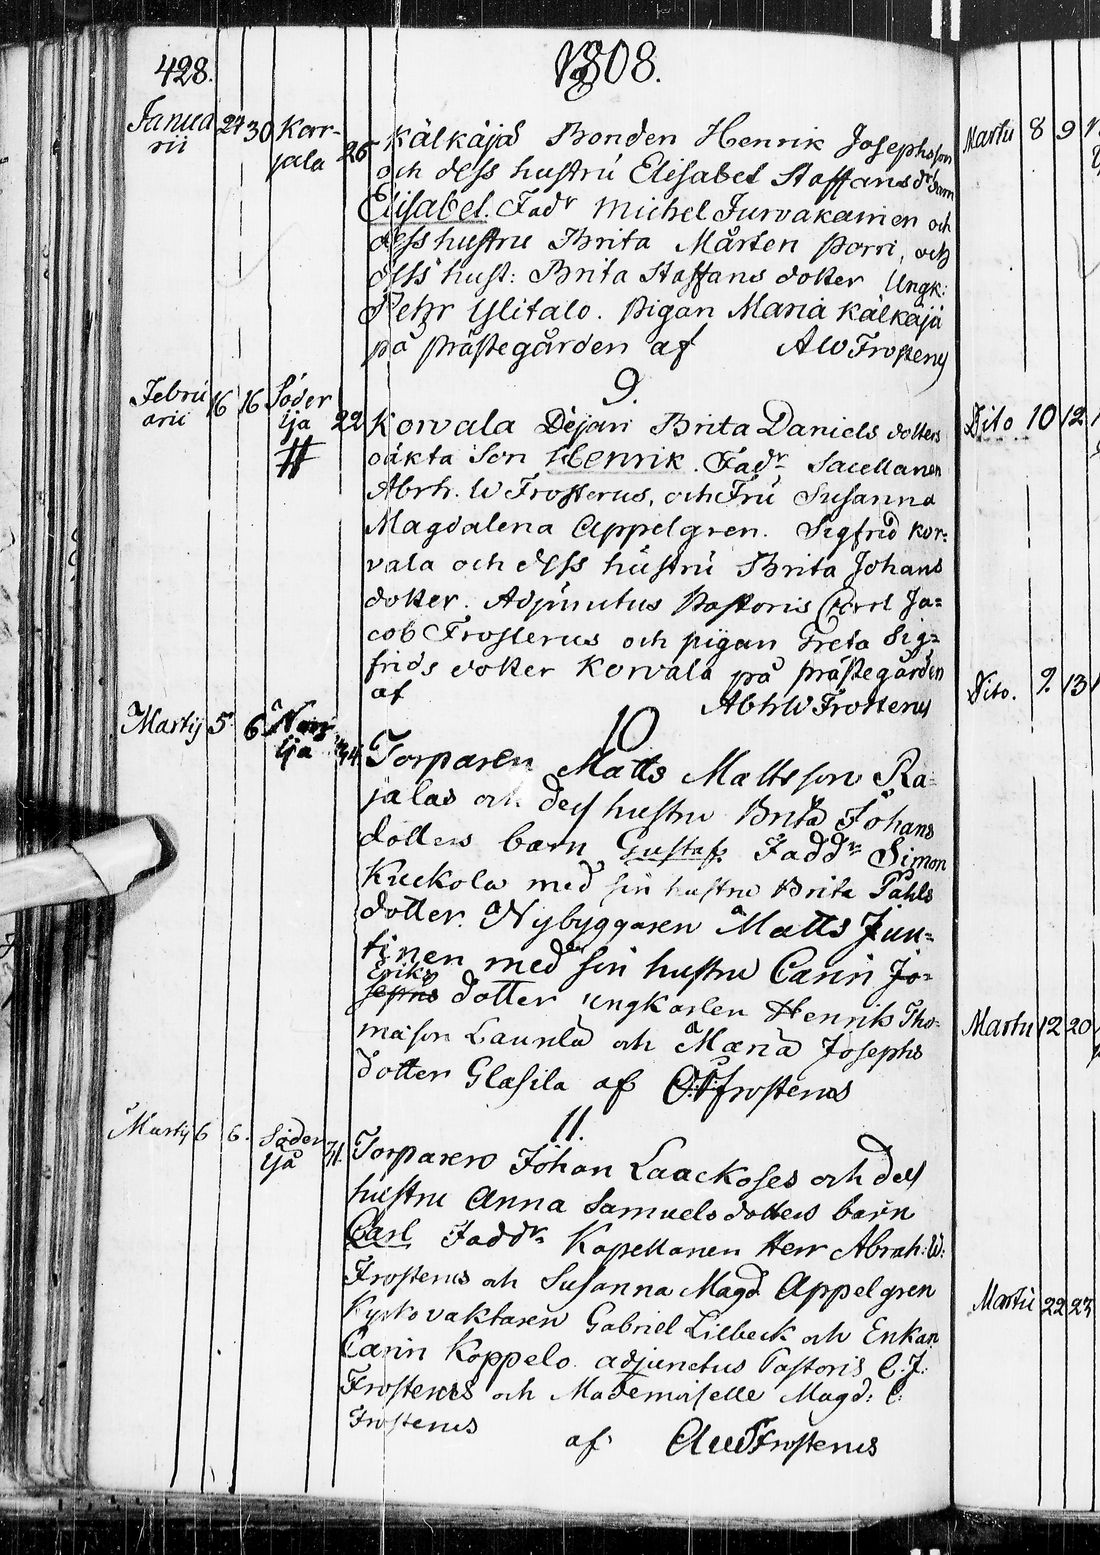 428.
1808.
Janua
rii
27 30
Korr-
jala
26
Kälkäjä Bonden Henrik Josephsson
och dess hustru Elisabet Staffans dr barn
Elisabel. Fadr Michel Jurvakainen och
dess hustru Brita Mårten Porri, och
dess hust: Brita Staffans dotter Ungk:
Pehr Ylitalo. Pigan Maria Kälkäjä
på Prästegården af AWFrosterus
9.
Febru
arii
16 16
Söder
lja
22
Korvala Dejan Brita Daniels dotters
oäkta Son Henrik. Fadr Sacellanen
Abrh. W Frosterus, och Fru Susanna
Magdalena Appelgren. Sigfrid Kor=
vala och dess hustru Brita Johans
dotter. Adjunctus Pastoris Carl Ja=
cob Frosterus och pigan Greta Sig=
frids dotter Korvala på Prästegården
af AbhWFrosterus
10
Martij 5. 6
lja
34.
Torparen Matts Mattsson Ra=
jalas och dess hustru Brita Johans
dotters barn Gustaf. Faddr Simon
Kuckola med sin hustru Brita Påhls
dotter. Nybyggaren Matts Jun=
tinen med sin hustru Carin Jo=
Eriks
sephs dotter ungkarlen Henrik Tho=
mason Launla och Maria Josephs
dotter Glasila af Frosterus
11.
Martij 6 6.
Söder
lja
31.
Torparen Johan Laackoses och dess
hustru Anna Samuels dotters barn
Carl Faddr Kapellanen Herr Abrah: W:
Frosterus och Susanna Magd Appelgren
Kyrkovaktaren Gabriel Lilbeck och Enkan
Carin Koppelo. adjunctus Pastoris C. J:
Frosterus och Mademoiselle Magd: C:
Frosterus
af AWFrosterus
Martii 8 9
Dito 10 12
Dito. 9. 13
Martii 12 20
Martii 22 23